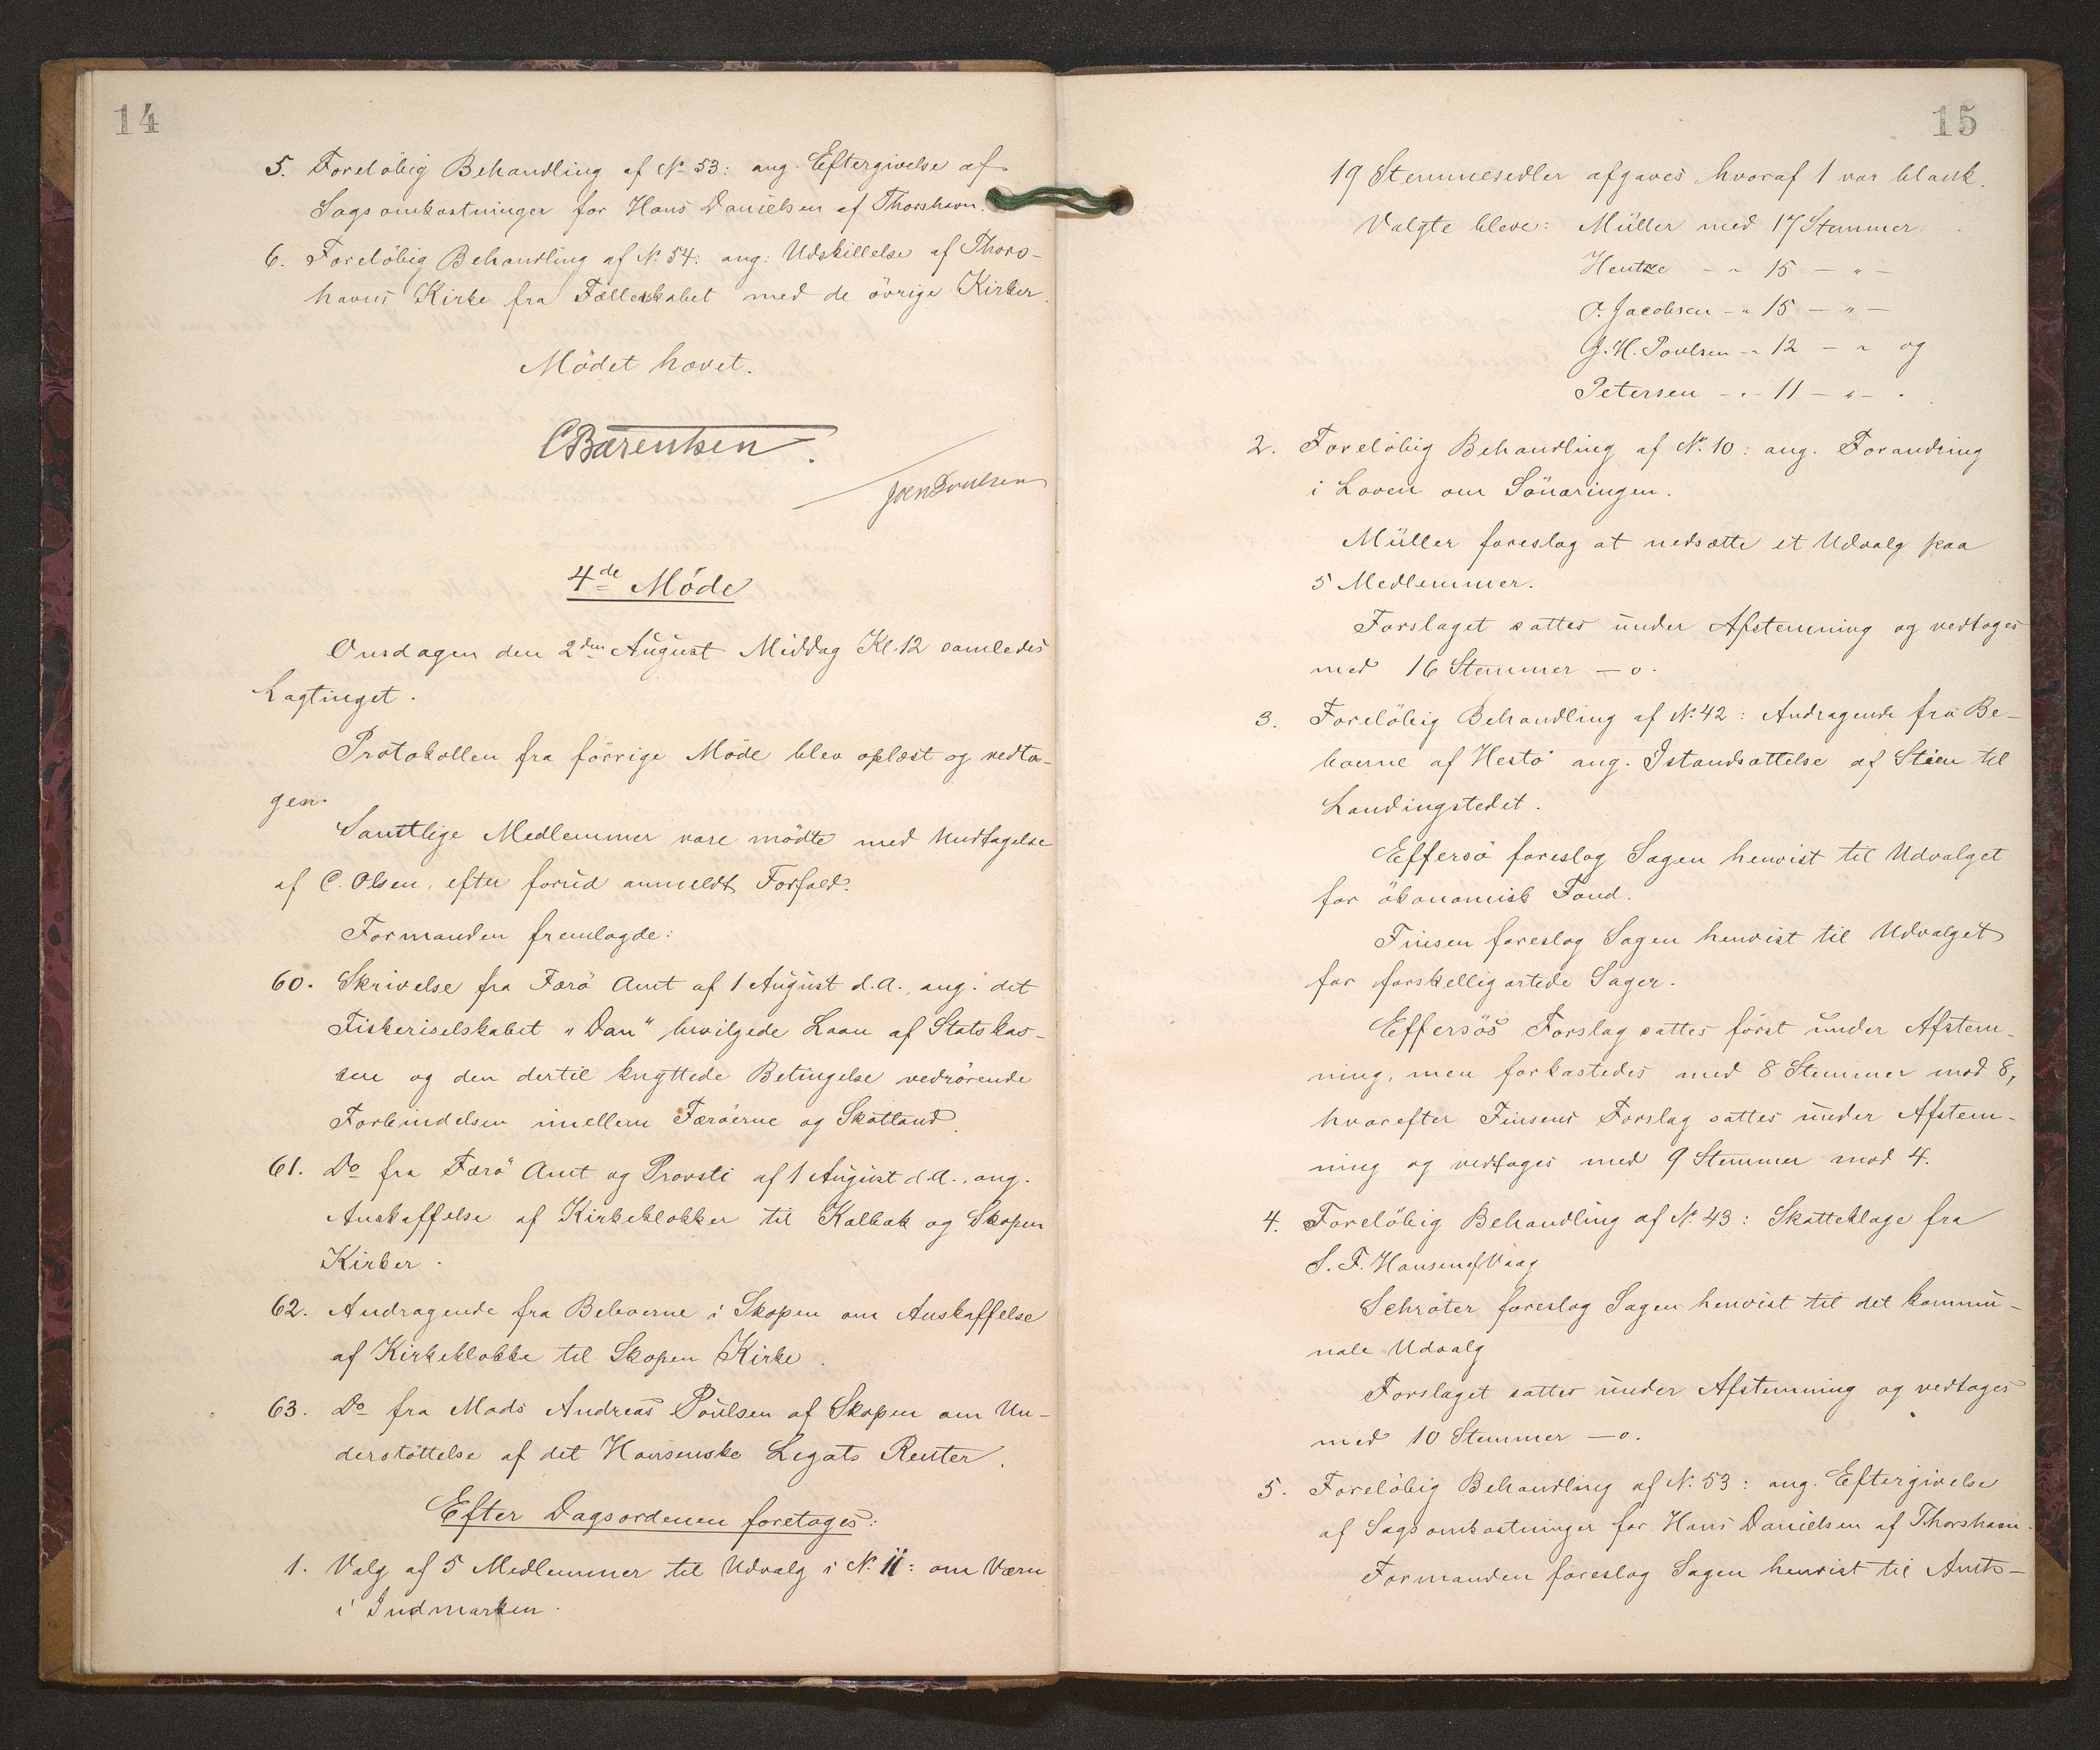 14
5. Forelöbig Behandling af No 53: ang. Eftergivelse af
Sagsomkostninger for Hans Danielsen af Thorshavn.
6. Forelöbig Behandling af No. 54: ang: Udskillelse af Thors-
havns Kirke fra Fællesskabet med de övrige Kirker.
Mödet hævet.
CBærentsen.
Joen Poulsen
4de Möde
Onsdagen den 2den August Middag Kl. 12 samledes
Lagtinget.
Protokollen fra förrige Möde blev oplæst og vedta-
gen.
Samtlige Medlemmer vare mödte med Undtagelse
af C. Olsen, efter forud anmeldt Forfald.
Formanden fremlagde:
60. Skrivelse fra Færö Amt af 1 August d.A., ang. det
Fiskeriselskabet "Dan" bevilgede Laan af Statskas-
sen og den dertil knyttede Betingelse vedrörende
Forbindelsen imellem Færöerne og Skotland.
61. Do fra Færö Amt og Provsti af 1 August d.A., ang.
Anskaffelse af Kirkeklokker til Kalbak og Skopen
Kirker.
62. Andragende fra Beboerne i Skopen om Anskaffelse
af Kirkeklokke til Skopen Kirke.
63. Do fra Mads Andreas Poulsen af Skopen om Un-
derstöttelse af det Hansenske Legats Renter.
Efter Dagsordenen foretages:
1. Valg af 5 Medlemmer til Udvalg i No. 11: om Værn
i Indmarken.
15
19 Stemmesedler afgaves hvoraf 1 var blank.
Valgte bleve: Müller med 17 Stemmer
Hentze - " 15 - " -
O. Jacobsen - " 15 - " -
J. H. Poulsen - " 12 - " og
Petersen - " - 11 - " - .
2. Forelöbig Behandling af No. 10: ang. Forandring
i Loven om Sönæringen.
Müller foreslog at nedsætte et Udvalg paa
5 Medlemmer.
Forslaget sattes under Afstemning og vedtoges
med 16 Stemmer - o.
3. Forelöbig Behandling af No. 42: Andragende fra Be-
boerne af Hestö ang. Istandsættelse af Stien til
Landingstedet.
Effersö foreslog Sagen henvist til Udvalget
for ökonomisk Fond.
Finsen foreslog Sagen henvist til Udvalget
for forskelligartede Sager.
Effersös Forslag sattes först under Afstem-
ning, men forkastedes med 8 Stemmer mod 8,
hvorefter Finsens Forslag sattes under Afstem-
ning og vedtoges med 9 Stemmer mod 4.
4. Forelöbig Behandling af No. 43: Skatteklage fra
S. F. Hansen af Vaag
Schröter foreslog Sagen henvist til det kommu-
nale Udvalg
Forslaget sattes under Afstemning og vedtoges
med 10 Stemmer - o.
5. Forelöbig Behandling af No. 53: ang. Eftergivelse
af Sagsomkostninger for Hans Danielsen af Thorshavn.
Formanden foreslog Sagen henvist til Amts-